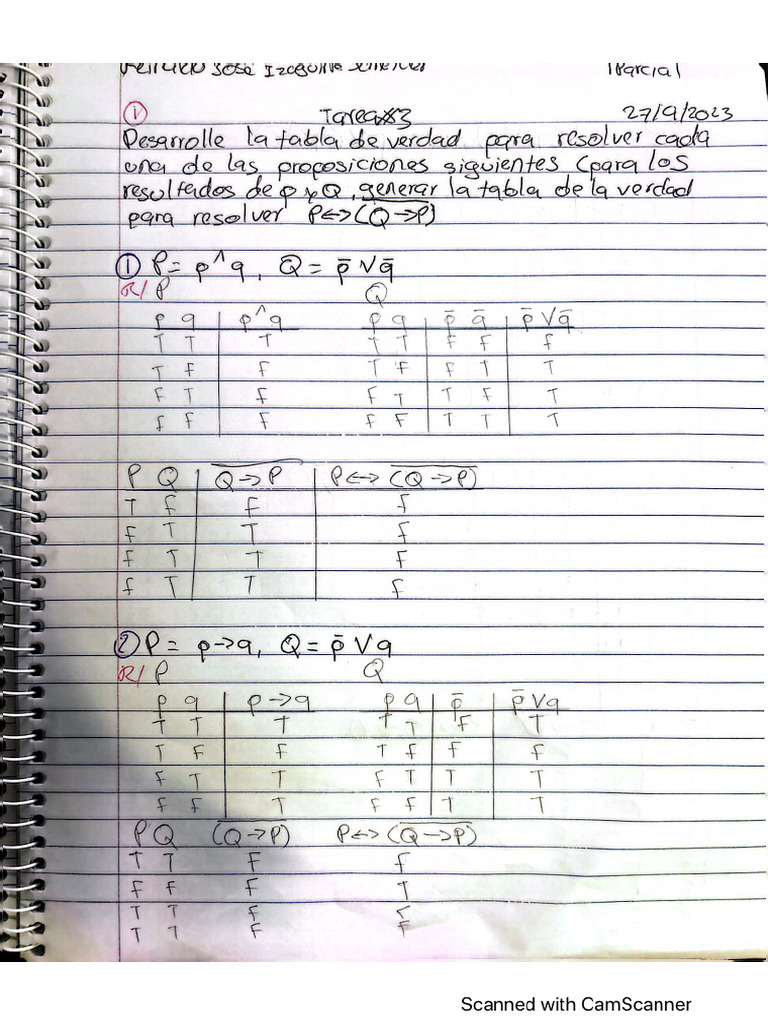 José Izaguirre IParcial
① Tarea#3 27/9/2023
Desarrolle la tabla de verdad para resolver cada
una de las proposiciones siguientes (para los
resultados de p y Q, generar la tabla de la verdad
para resolver P↔(Q̅→̅P̅)
① P = p^q, Q = p̄ ∨ q̄
R/ P Q
p q | p^q p q | p̄ q̄ | p̄ ∨ q̄
T T | T T T | F F | F
T F | F T F | F T | T
F T | F F T | T F | T
F F | F F F | T T | T
P Q | Q̅→̅P̅ | P↔(Q̅→̅P̅)
T F | F | F
F T | T | F
F T | T | F
F T | T | F
② P = p→q, Q = p̄ ∨ q
R/ P Q
p q | p→q p q | p̄ | p̄ ∨ q
T T | T T T | F | T
T F | F T F | F | F
F T | T F T | T | T
F F | T F F | T | T
P Q (Q̅→̅P̅) P↔(Q̅→̅P̅)
T T F F
F F F T
T T F F
T T F F
Scanned with CamScanner